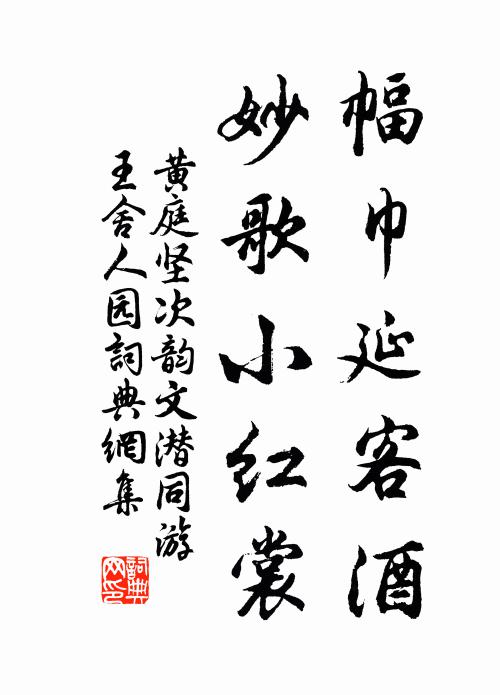 幅巾延客酒
妙歌小红裳
黄庭坚次韵文潜同游
王舍人园詞典網集
詞典网印